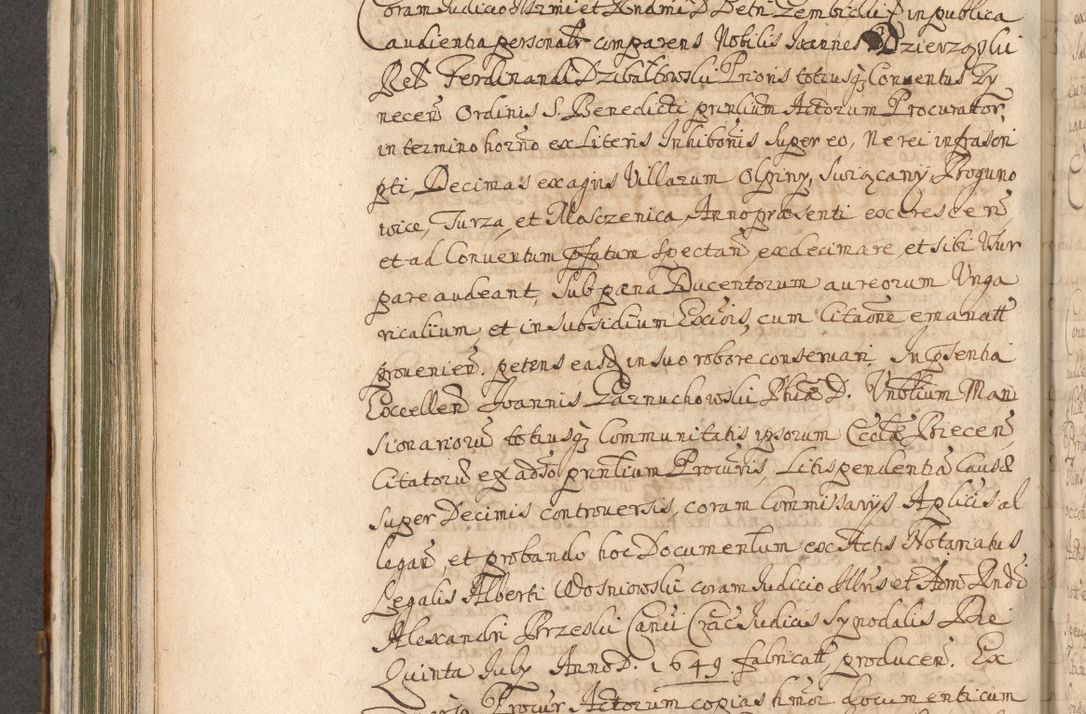 Coram Judicio Illrmi et Rndmi D Petri Gembicki in publica
audientia personalr comparens Nobilis Joannes Dzierzgski
Rdi Ferdinandi Dzibaltowski Prioris totiusq Conventus Ty
necen Ordinis S. Benedicti prntium Actorum Procurator,
in termino horno ex Literis Inhibonis super eo, Ne rei infrascri
pti, Decimas ex agris Villarum Olpiny, Swięcany, Rogono
wice, Turza, et Mosczenica, Anno præsenti excrescen,
et ad Conventum pfatum spectan exdecimare, et sibi Usur
pare audeant, sub pæna Ducentorum aureorum Unga
ricalium, et in subsidium Excois, cum Citaone emanatt
provenien. petens easd in suo robore conservari. In psentia
Excellen Joannis Zarnuchowski Phiæ D. Vnblium Man
sionarioru totiusq Communitatis ipsorum Eccla Biecen
Citatoru ex adso prntium Procuris, Litispendentia Causæ
super Decimis controversis, coram Commissarijs Aplicis al
legan, et probando hoc Documentum ex Actis Notariatus
Legalis Alberti Wosniowski coram Judicio Illris et Adm Rndi
Alexandri Brzeski Canci Crac Judicis synodalis Die
Quinta July Anno D. 1649. fabricatt, producen. Ex
Procur Actorum copias hmoi documenti cum